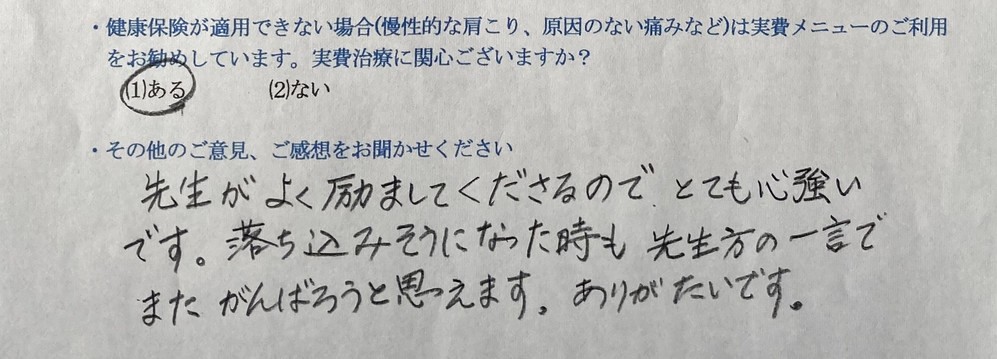 ・健康保険が適用できない場合(慢性的な肩こり、原因のない痛みなど)は実費メニューのご利用
をお勧めしています。実費治療に関心ございますか?
(1)ある (2)ない
・その他のご意見、ご感想をお聞かせください
先生がよく励ましてくださるので、とても心強い
です。落ち込みそうになった時も先生方の一言で
またがんばろうと思えます。ありがたいです。